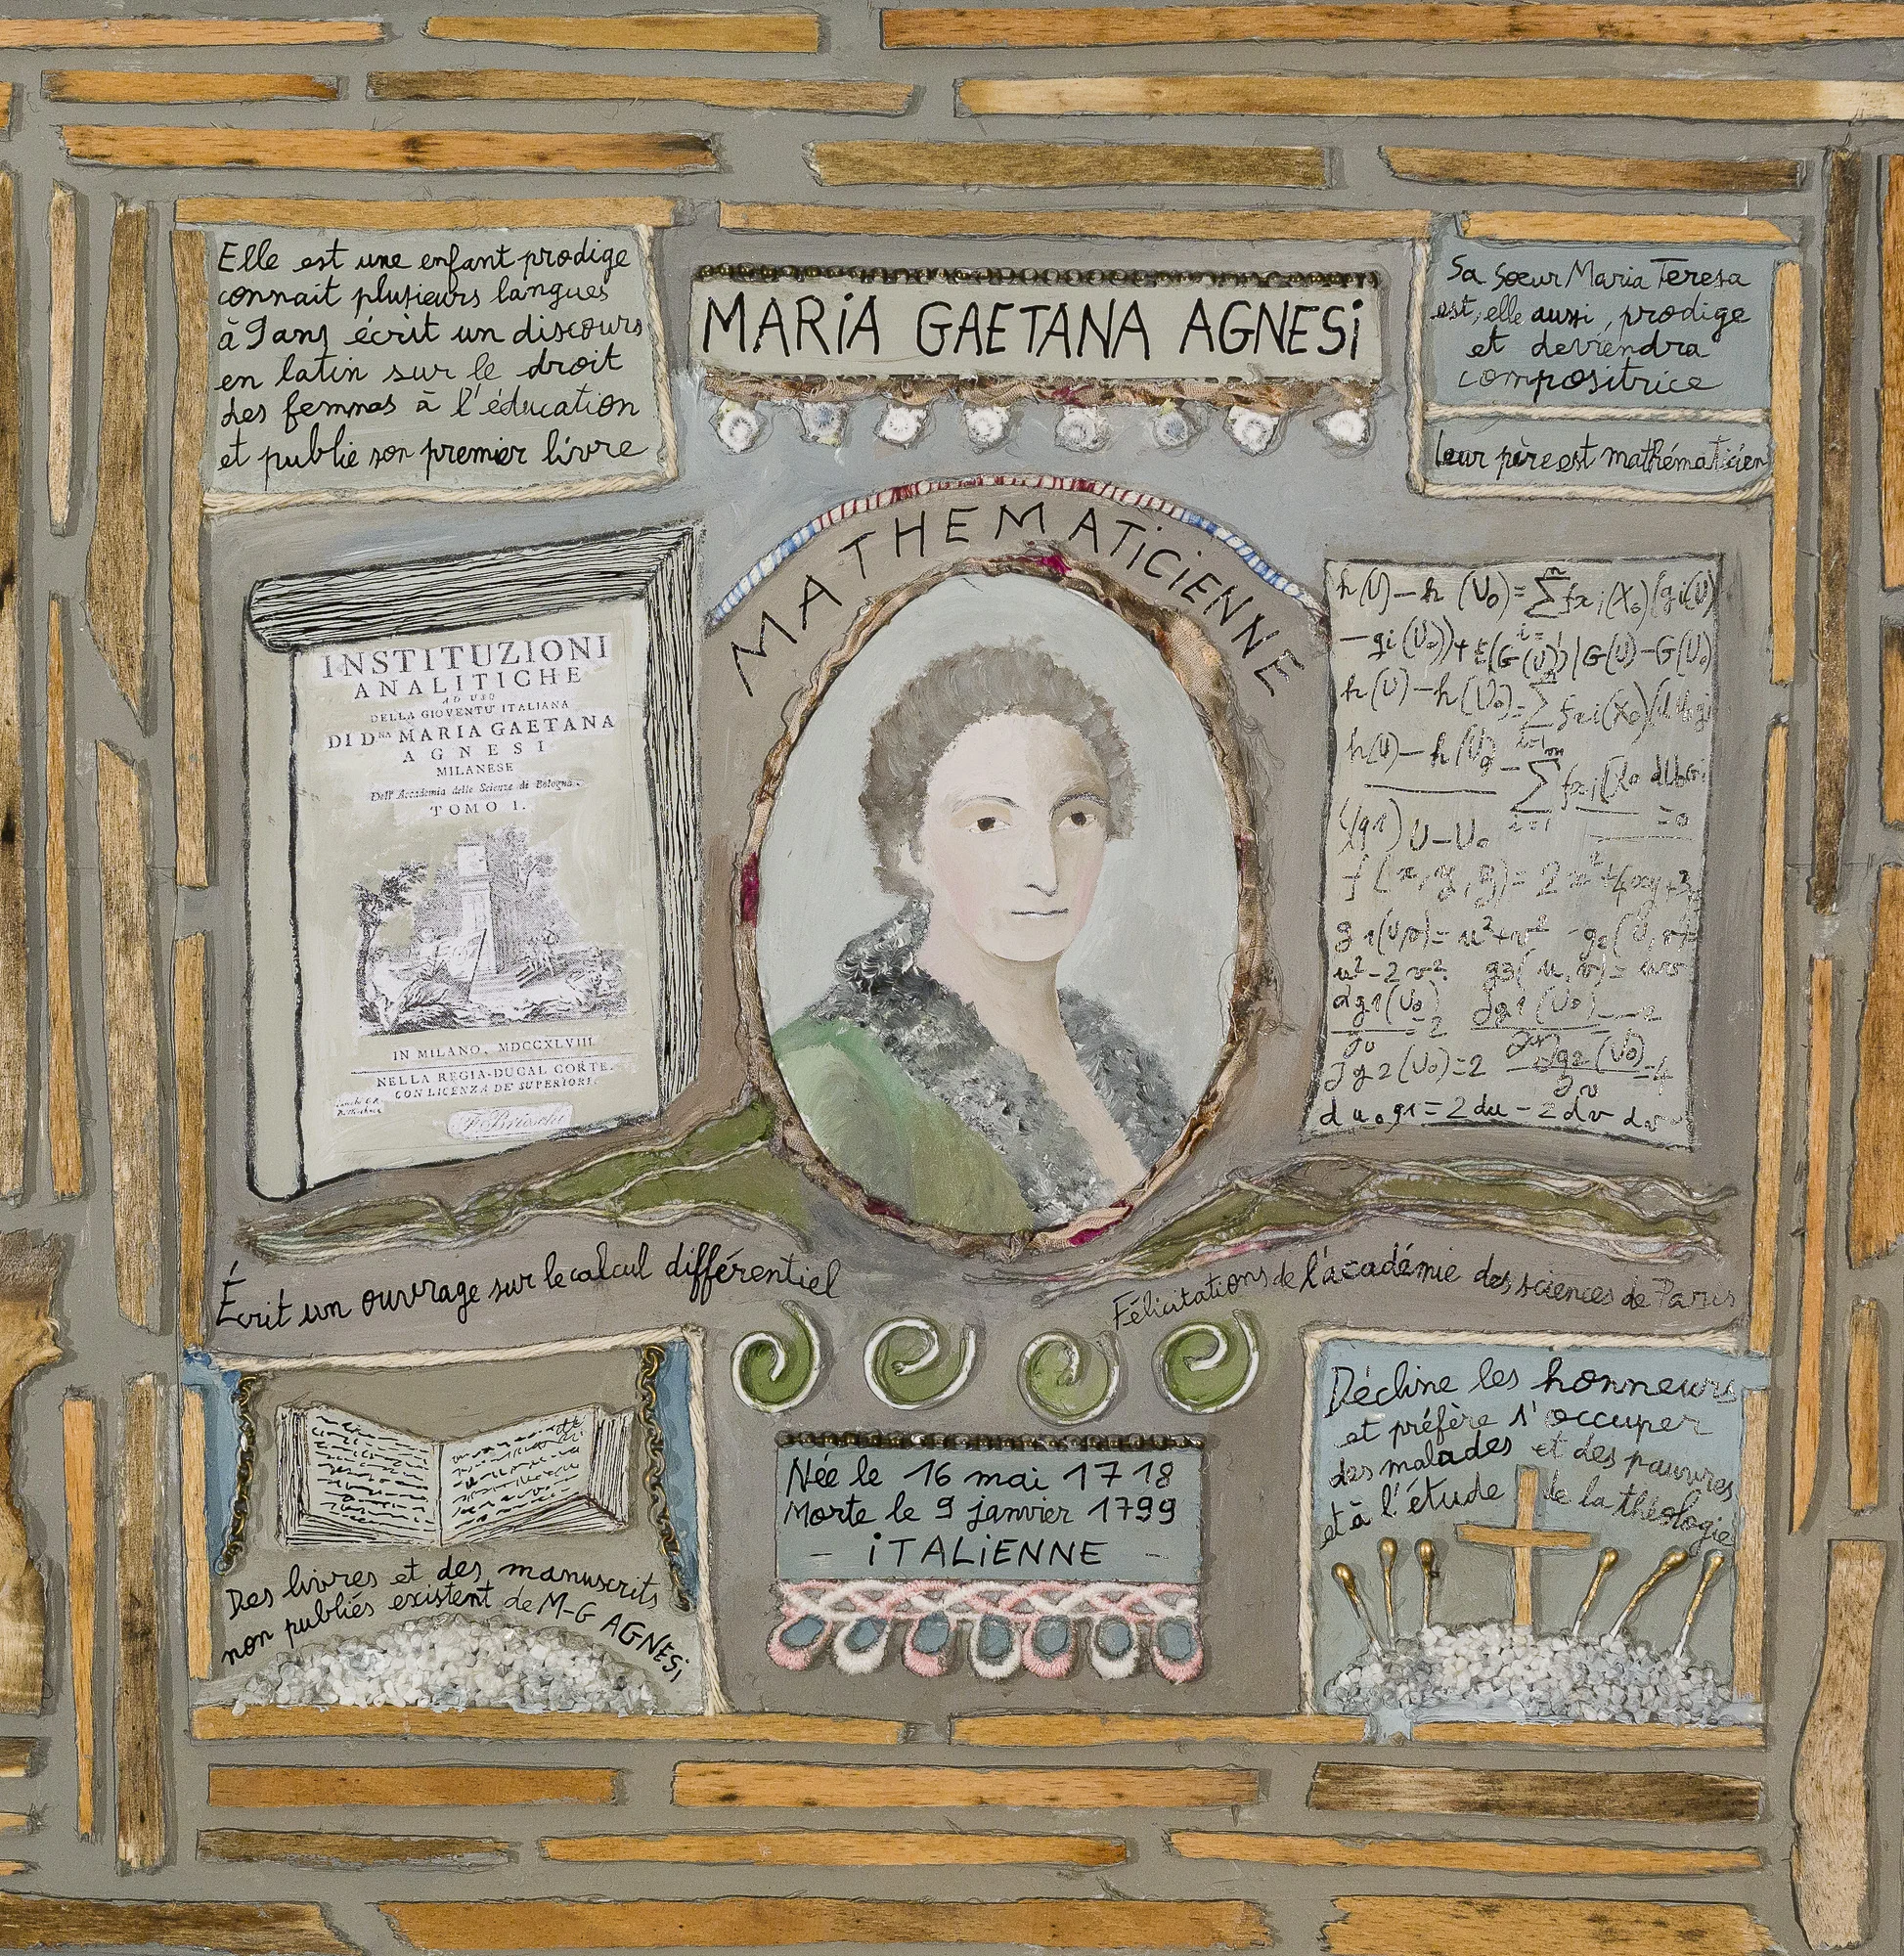 Elle est une enfant prodige
connait plusieurs langues
à 9 ans écrit un discours
en latin sur le droit
des femmes à l'éducation
et publie son premier livre
MARiA GAETANA AGNESi
Sa Sœur Maria Teresa
est, elle aussi, prodige
et deviendra
compositrice
leur père est mathématicien
MATHEMATiCiENNE
INSTITUZIONI
ANALITICHE
AD USO
DELLA GIOVENTU' ITALIANA
DI D.NA MARIA GAETANA
AGNESI
MILANESE
Dell' Accademia delle Scienze di Bologna.
TOMO I.
IN MILANO, MDCCXLVIII
NELLA REGIA-DUCAL CORTE.
CON LICENZA DE' SUPERIORI.
F. Brioschi
h(U)-h (U₀)=∑fxi(X₀)(gi(U)
-gi(U₀))+E(G(U))|G(U)-G(U₀)
h(U)-h(U₀)=∑fxi(X₀)
h(U)-h(U₀
i=1
=0
U-U₀
f(x,y,z)=2x²+4xy+3
g1(u,v)=u²+v² g2(U,v)=
u²-2v² g3(u,v)=uv
∂g1(U₀)=2 ∂g1(U₀)=-2
∂g2(U₀)=2 ∂g2(U₀)=4
∂v
du₀g1=2du-2dv
Écrit un ouvrage sur le calcul différentiel
Félicitations de l'académie des sciences de Paris
Des livres et des manuscrits
non publiés existent de M-G AGNESi
Née le 16 mai 1718
Morte le 9 janvier 1799
- iTALiENNE -
Décline les honneurs
et préfère s'occuper
des malades et des pauvres
et à l'étude de la théologie